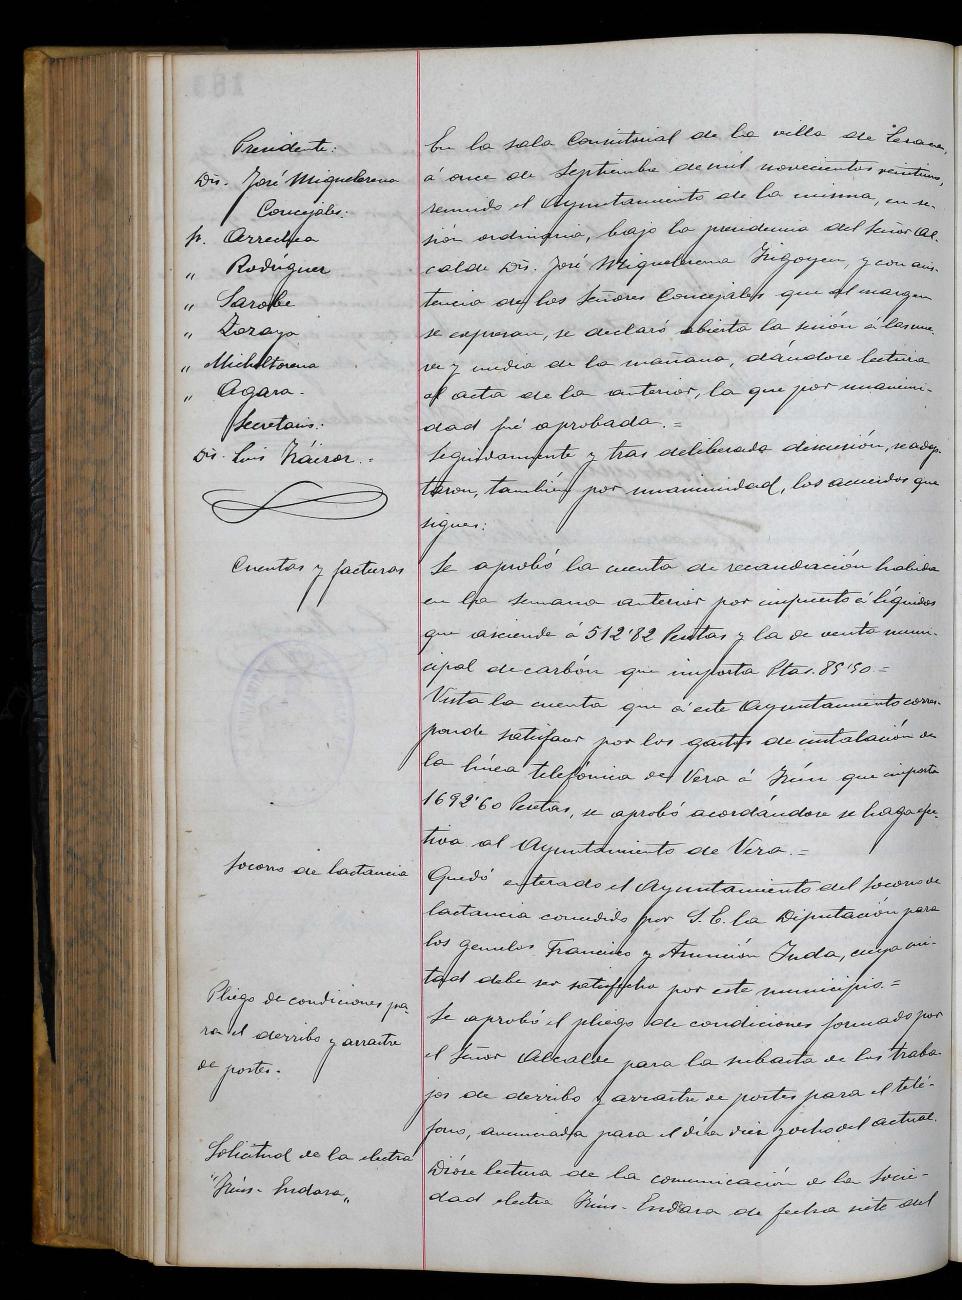 Presidente:
Dn. José Miquelarena
Concejales:
Sr. Arrechea
" Rodríguez
" Sarobe
" Zoraya
" Micheltorena
" Agara.
Secretario:
Dn. Luis Iráizoz.=
En la sala Consistorial de la villa de Lesaca,
á once de Septiembre de mil novecientos veintiuno,
reunido el Ayuntamiento de la misma, en se-
sión ordinaria, bajo la presidencia del Señor Al-
calde Dn. José Miquelarena Irigoyen, y con asis-
tencia de los Señores Concejales que al margen
se expresan, se declaró abierta la sesión á las nue-
ve y media de la mañana, dándose lectura
al acta de la anterior, la que por unanimi-
dad fué aprobada.=
Seguidamente y tras deliberada discusión, se adop-
taron, también por unanimidad, los acuerdos que
siguen:
Cuentas y facturas
Se aprobó la cuenta de recaudación habida
en la semana anterior por impuesto á líquidos
que asciende á 512'82 Pesetas y la de venta muni-
cipal de carbón que importa Ptas. 85'50=
Vista la cuenta que á este Ayuntamiento corres-
ponde satisfacer por los gastos de instalación de
la línea telefónica de Vera á Irún que importa
1692'60 Pesetas, se aprobó acordándose se haga efec-
tiva al Ayuntamiento de Vera.=
Socorro de lactancia
Quedó enterado el Ayuntamiento del socorro de
lactancia concedido por S.E. la Diputación para
los gemelos Francisco y Asunción Inda, cuya mi-
tad debe ser satisfecha por este municipio.=
Pliego de condiciones pa-
ra el derribo y arrastre
de postes.
Se aprobó el pliego de condiciones formado por
el Señor Alcalde para la subasta de los traba-
jos de derribo y arrastre de postes para el telé-
fono, anunciada para el día diez y ocho del actual.
Solicitud de la electra
"Irún-Endara"
Dióse lectura de la comunicación de la Socie-
dad electra Irún-Endara de fecha siete del